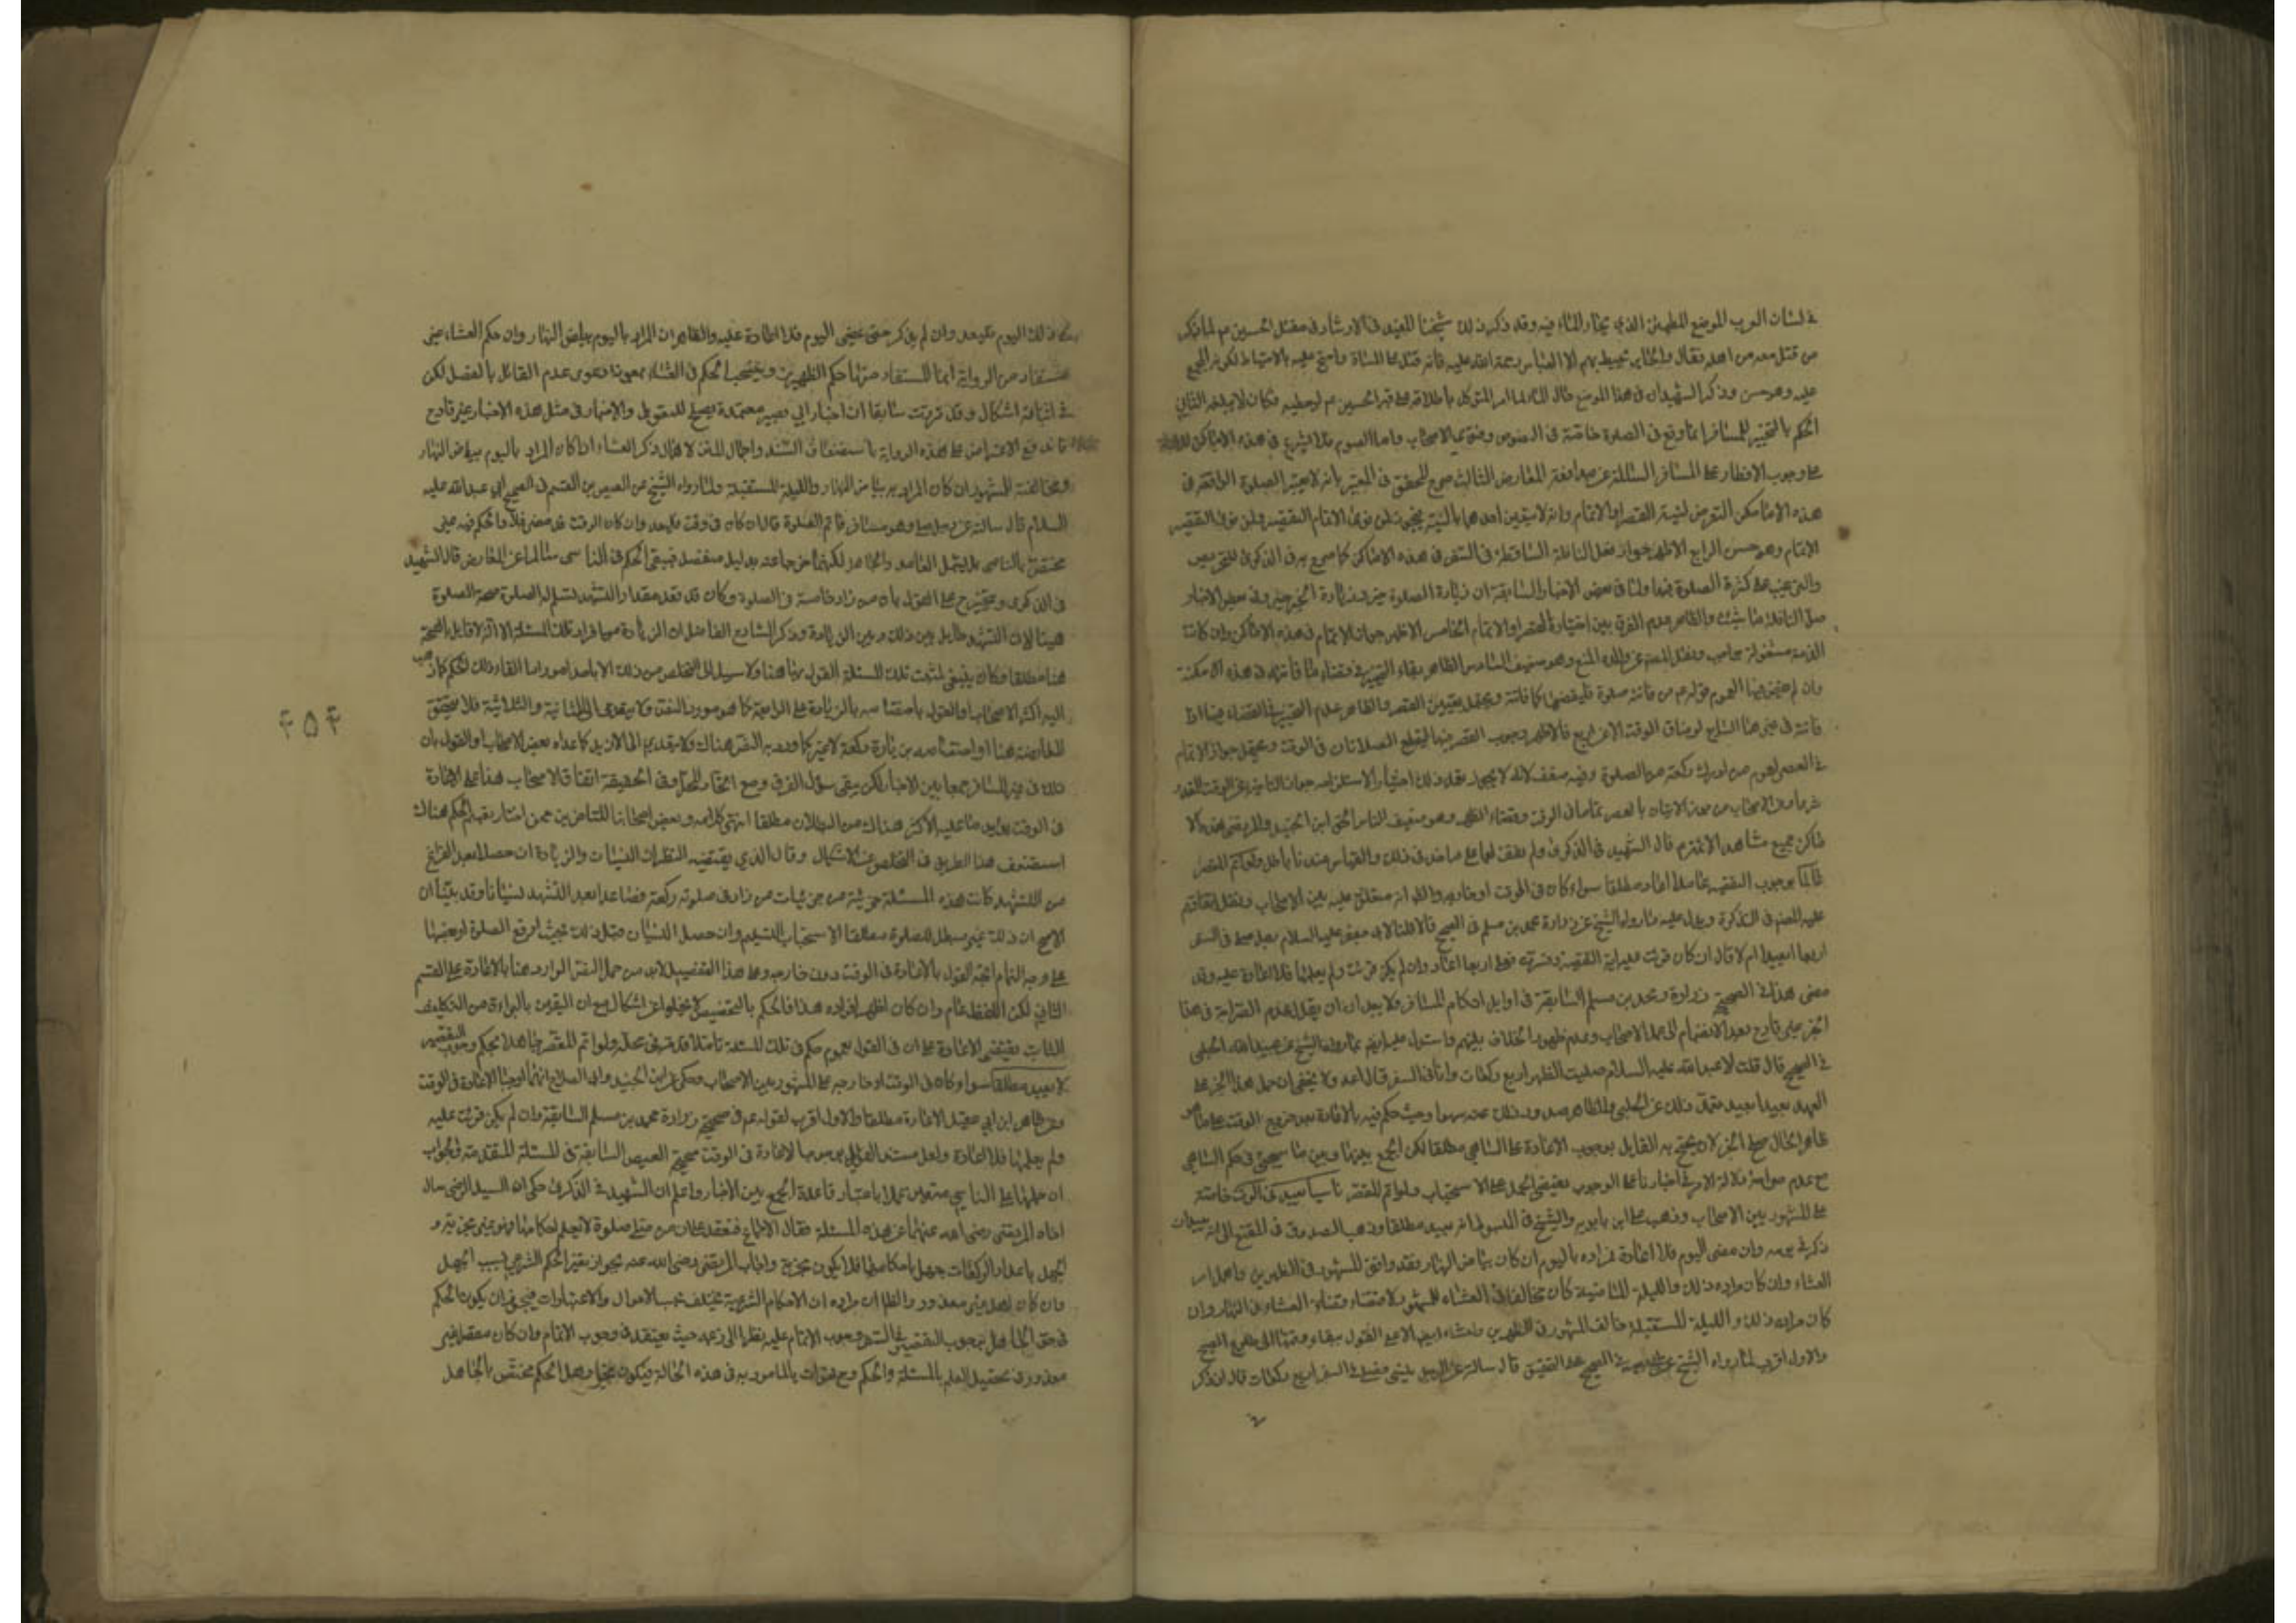 في لسان العرب الموضع المطمئن الذي يحار الماء فيه وقد ذكر ذلك شيخنا المفيد في الارشاد في مقتل الحسين عم لما ذكر
من قتل معه من اهله فقال والحاير محيط بهم الا العباس رحمة الله عليه فانه قتل على المسناة واحتج عليه بالاحتياط لكونه المجمع
عليه وهو حسن وذكر الشهيد ان في هذا الموضع حار الماء لما امر المتوكل باطلاقه على قبر الحسين عم ليعفيه فكان لا يبلغه الثاني
الحكم بالتخيير للمسافر انما وقع في الصلوة خاصة في النصوص وفتوى الاصحاب واما الصوم فلا يشرع في هذه الاماكن
على وجوب الافطار على المسافر السالمة عن مدافعة المعارض الثالث صرح المحقق في المعتبر بانه لا يعتبر الصلوة الواقعة في
هذه الاماكن التعرض لنية القصر او الاتمام وانه لا يتعين احدهما بالنية فيجوز لمن نوى الاتمام التقصير ولمن نوى التقصير
الاتمام وهو حسن الرابع الاظهر جواز فعل النافلة الساقطة في السفر في هذه الاماكن كما صرح به في الذكرى للتحريص
والترغيب على كثرة الصلوة فيها ولما في بعض الاخبار السابقة ان زيارة الصلوة خير وزيادة الخير خير وفي بعض الاخبار
صل النافلة ما شئت والظاهر عدم الفرق بين اختيار القصر او الاتمام الخامس الاظهر جواز الاتمام في هذه الاماكن وان كانت
الذمة مشغولة بواجب ونقل المصنف عن والده المنع وهو ضعيف السادس الظاهر بقاء التخيير في قضاء ما فاتته في هذه الامكنة
وان لم يقض فيها لعموم قوله عم من فاتته صلوة فليقضها كما فاتته ويحتمل تعيين القصر والظاهر عدم التخيير في القضاء فيها اذا
فاتته في غيرها السابع لو ضاق الوقت الا عن اربع فالاظهر وجوب القصر فيهما ليقع الصلاتان في الوقت ويحتمل جواز الاتمام
في العصر لعموم من ادرك ركعة من الصلوة وفيه ضعف لانه لا يجوز تعمد ذلك اختيارا لاستلزامه جواز التاخير عن الوقت المقدر
شرعا ومن الاصحاب من جوز الاتيان بالعصر تماما في الوقت وقضاء الظهر وهو ضعيف الثامن الحق ابن الجنيد والمرتضى بهذه الا
ماكن جميع مشاهد الائمة عم قال الشهيد في الذكرى ولم نقف لهما على ماخذ في ذلك والقياس عندنا باطل ولو اتم المقصر
عالما بوجوب التقصير عامدا اعاد مطلقا سواء كان في الوقت او خارجه والظ انه متفق عليه بين الاصحاب ونقل اتفاقهم
عليه المصنف في التذكرة ويدل عليه ما رواه الشيخ عن زرارة ومحمد بن مسلم في الصحيح قالا قلنا لابي جعفر عليه السلام رجل صلى في السفر
اربعا ايعيد ام لا قال ان كان قرئت عليه اية التقصير وفسرت له فصلى اربعا اعاد وان لم يكن قرئت ولم يعلمها فلا اعادة عليه وقد
مضى هذا في الصحيح زرارة ومحمد بن مسلم السابقة في اوايل احكام المسافر ولا يبعد ان يقال عدم الصراحة في هذا
الخبر غير قادح بعد الانضمام الى عمل الاصحاب وعدم ظهور الخلاف بينهم واستدل عليه ايضا بما رواه الشيخ عن عبيد الله الحلبي
في الصحيح قال قلت لابي عبد الله عليه السلام صليت الظهر اربع ركعات وانا في السفر قال اعد ولا يخفى ان حمل هذا الخبر على
العمد بعيد اذ يبعد تعمد ذلك عن الحلبي والظاهر صدور ذلك عنه سهوا وحيث حكم فيه بالاعادة بعد خروج الوقت على ما هو
ظاهر الحال صح الخبر لان يحتج به القايل بوجوب الاعادة على الساهي مطلقا لكن الجمع بينها وبين ما سيجئ في حكم الساهي
مع عدم صراحة دلالة الامر في اخبارنا على الوجوب يقتضي الحمل على الاستحباب ولو اتم المقصر ناسيا يعيد في الوقت خاصة
على المشهور بين الاصحاب وذهب علي ابن بابويه والشيخ في المبسوط انه يعيد مطلقا وذهب الصدوق في المقنع الى انه يعيد ان
ذكر في يومه وان مضى اليوم فلا اعادة فمراده باليوم ان كان بياض النهار فقد وافق المشهور في الظهرين واهمل امر
العشاء وان كان مراده ذلك والليلة الماضية كان مخالفا في العشاء للمشهور لاقتضائه قضاء العشاء في النهار وان
كان مراده ذلك والليلة المستقبلة خالف المشهور في الظهرين وامضاء ايضا الا مع القول ببقاء وقتها الى طلوع الصبح
والاول اقرب لما رواه الشيخ عن ابي بصير في الصحيح على التحقيق قال سالته عن الرجل ينسى فيصلي في السفر اربع ركعات قال ان ذكر
في ذلك اليوم فليعد وان لم يذكر حتى يمضي اليوم فلا اعادة عليه والظاهر ان المراد باليوم بياض النهار وان حكم العشاء غير
مستفاد من الرواية انما المستفاد منها حكم الظهرين وينسحب الحكم في العشاء بمعونة دعوى عدم القائل بالفصل لكن
في اثباته اشكال وقد عرفت سابقا ان اخبار ابي بصير معتمدة يصح للتعويل والاضمار في مثل هذه الاخبار غير قادح
فاندفع الاعتراض على هذه الرواية باستضعاف السند واجمال المتن لاهمال ذكر العشاء اذا كان المراد باليوم بياض النهار
ومخالفته المشهور ان كان المراد به بياض النهار والليلة المستقبلة ولما رواه الشيخ عن العيص بن القسم في الصحيح عن ابي عبد الله عليه
السلام قال سالته عن رجل صلى وهو مسافر فاتم الصلوة قال ان كان في وقت فليعد وان كان الوقت قد مضى فلا والحكم فيه غير
مختص بالناسي بل يشمل العامد والجاهل لكنهما خرجا عنه بدليل منفصل فيبقى الحكم في الناسي سالما عن المعارض قال الشهيد
في الذكرى ويتخرج على القول بان من زاد خامسة في الصلوة وكان قد قعد مقدار التشهد تسلم له الصلوة صحة الصلوة
هنا لان التشهد حايل بين ذلك وبين الزيادة وذكر الشارح الفاضل ان الزيادة من افراد تلك المسئلة الا انه لا قايل بالصحة
هنا مطلقا فكان ينبغي لمثبت تلك المسئلة القول بها هنا ولا سبيل الى التخلص من ذلك الا باحد امور اما القاء ذلك الحكم كما ذهب
اليه اكثر الاصحاب او القول باختصاصه بالزيادة على الرابعة كما هو مورد النص ولا يتعدى الى الثنائية والثلاثية فلا يتحقق
المعارضة هنا او اختصاصه بزيادة ركعة لا غير كما ورد به النص هناك ولا يتعدى الى الازيد كما عداه بعض الاصحاب او القول بان
ذلك في غير المسافر جمعا بين الاخبار لكن يبقى سؤال الفرق ومع اتحاد المحل وفي الحقيقة اتفاق الاصحاب هنا على الاعادة
في الوقت يؤيد ما عليه الاكثر هناك من البطلان مطلقا انتهى كلامه وبعض اصحابنا المتاخرين ممن اختار بقاء الحكم هناك
استضعف هذا الطريق في التخلص عن الاشكال وقال الذي يقتضيه النظر ان النسيان والزيادة ان حصلا بعد الفراغ
من التشهد كانت هذه المسئلة جزئية من جزئيات من زاد في صلوته ركعة فصاعدا بعد التشهد نسيانا وقد بينا ان
الاصح ان ذلك غير مبطل للصلوة مطلقا لاستحباب التسليم وان حصل النسيان قبل ذلك بحيث اوقع الصلوة او بعضها
على وجه التمام اتجه القول بالاعادة في الوقت دون خارجه وعلى هذا التفصيل لابد من حمل النص الوارد هنا بالاعادة على القسم
الثاني لكن اللفظ عام وان كان اظهر افراده هذا فالحكم بالتخصيص لا يخلو عن اشكال مع ان اليقين بالبراءة من التكليف
الثابت يقتضي الاعادة على ان في القول بعموم حكم في تلك المسئلة تاملا قد مر في محله ولو اتم المقصر جاهلا بحكم وجوب التقصير
لا يعيد مطلقا سواء كان في الوقت او خارجه على المشهور بين الاصحاب وحكي عن ابن الجنيد وابي الصلاح انهما اوجبا الاعادة في الوقت
وعن ظاهر ابن ابي عقيل الاعادة مطلقا والاول اقرب لقوله عم في صحيحة زرارة ومحمد بن مسلم السابقة وان لم يكن قرئت عليه
ولم يعلمها فلا اعادة ولعل مستند القولين بوجوبها الاعادة في الوقت صحيحة العيص السابقة في المسئلة المتقدمة والجواب
ان حملها على الناسي متعين عملا باعتبار قاعدة الجمع بين الاخبار واعلم ان الشهيد في الذكرى حكى ان السيد الرضي سال
اخاه المرتضى رضي الله عنهما عن هذه المسئلة فقال الاجماع منعقد على ان من صلى صلوة لا يعلم احكامها فهو غير مجزية و
الجهل باعداد الركعات جهل باحكامها فلا يكون مجزية واجاب المرتضى رضي الله عنه بجواز تغير الحكم الشرعي بسبب الجهل
وان كان الجاهل غير معذور والظاهر ان مراده ان الاحكام الشرعية يختلف بحسب الاحوال والاعتبارات فيجوز ان يكون الحكم
في حق الجاهل بوجوب التقصير في السفر وجوب الاتمام عليه نظرا الى زعمه حيث يعتقد في وجوب الاتمام وان كان مقصرا غير
معذور في تحصيل العلم بالمسئلة والحكم ومع فوات بالمامور به في هذه الحالة فيكون مجزيا وهل الحكم مختص بالجاهل
۴۵۴